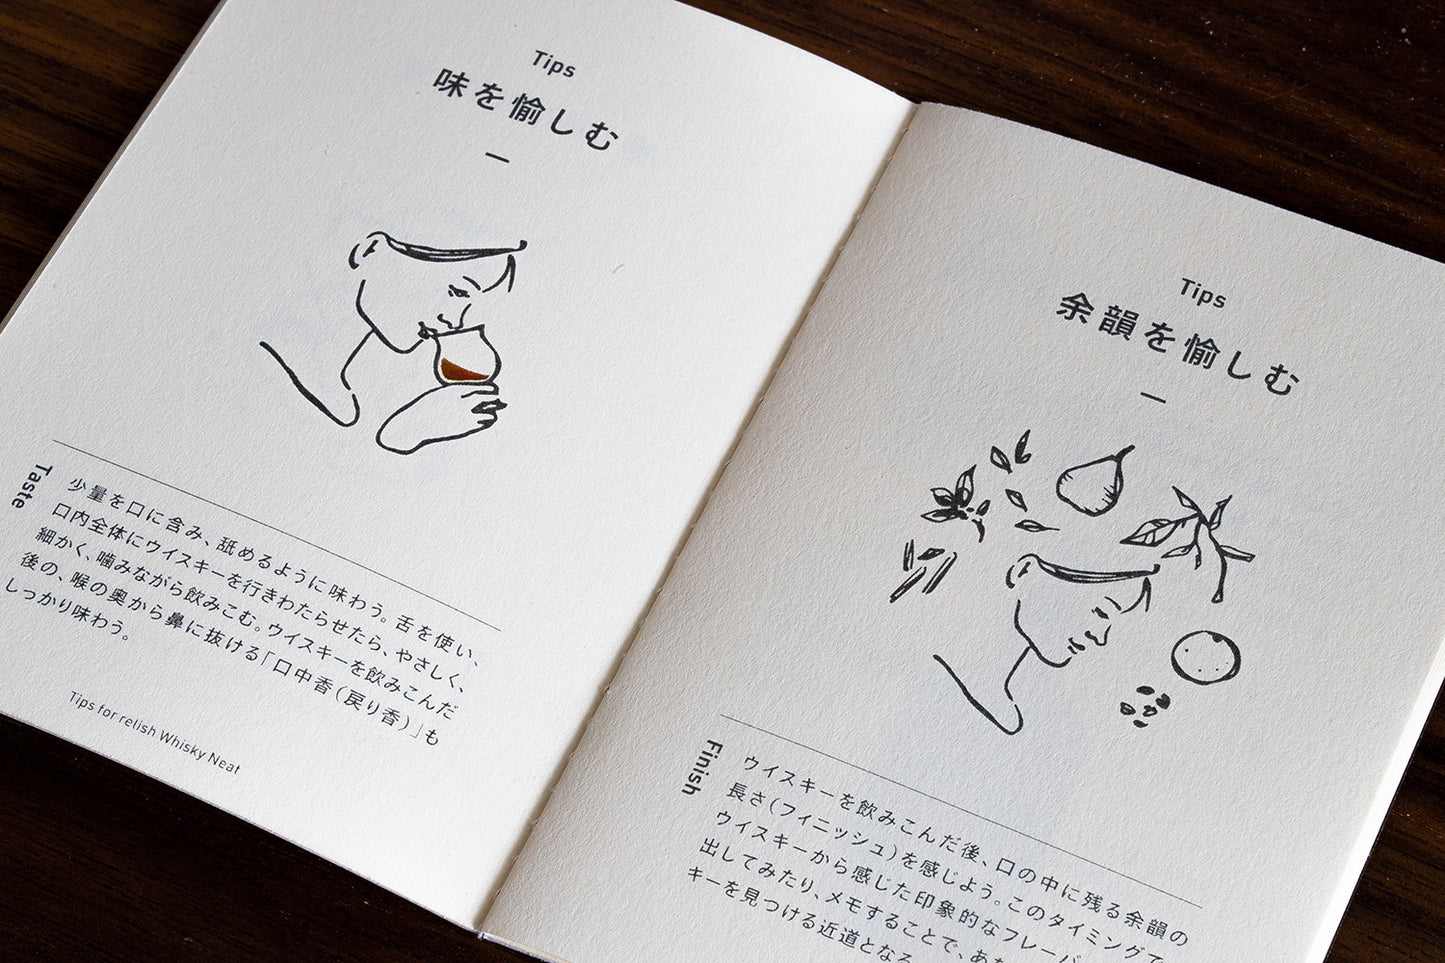 Tips
味を愉しむ
Taste
少量を口に含み、舐めるように味わう。舌を使い、
口内全体にウイスキーを行きわたらせたら、やさしく、
細かく、噛みながら飲みこむ。ウイスキーを飲みこんだ
後の、喉の奥から鼻に抜ける「口中香(戻り香)」も
しっかり味わう。
Tips for relish Whisky Neat
Tips
余韻を愉しむ
Finish
ウイスキーを飲みこんだ後、口の中に残る余韻の
長さ(フィニッシュ)を感じよう。このタイミングで
ウイスキーから感じた印象的なフレーバ
出してみたり、メモすることで、あな
キーを見つける近道となる